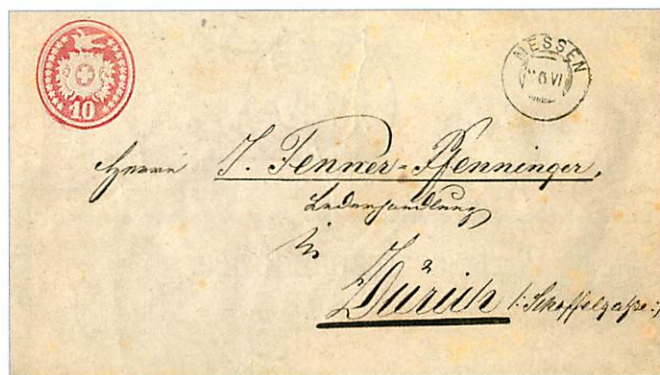 10
MESSEN
6 VI
Herrn J. Fenner-Pfenninger,
Lederhandlung
in
Zürich /: Schoffelgasse :/